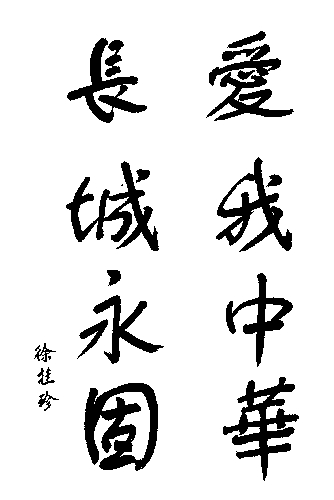 愛我中華
長城永固
徐桂珍